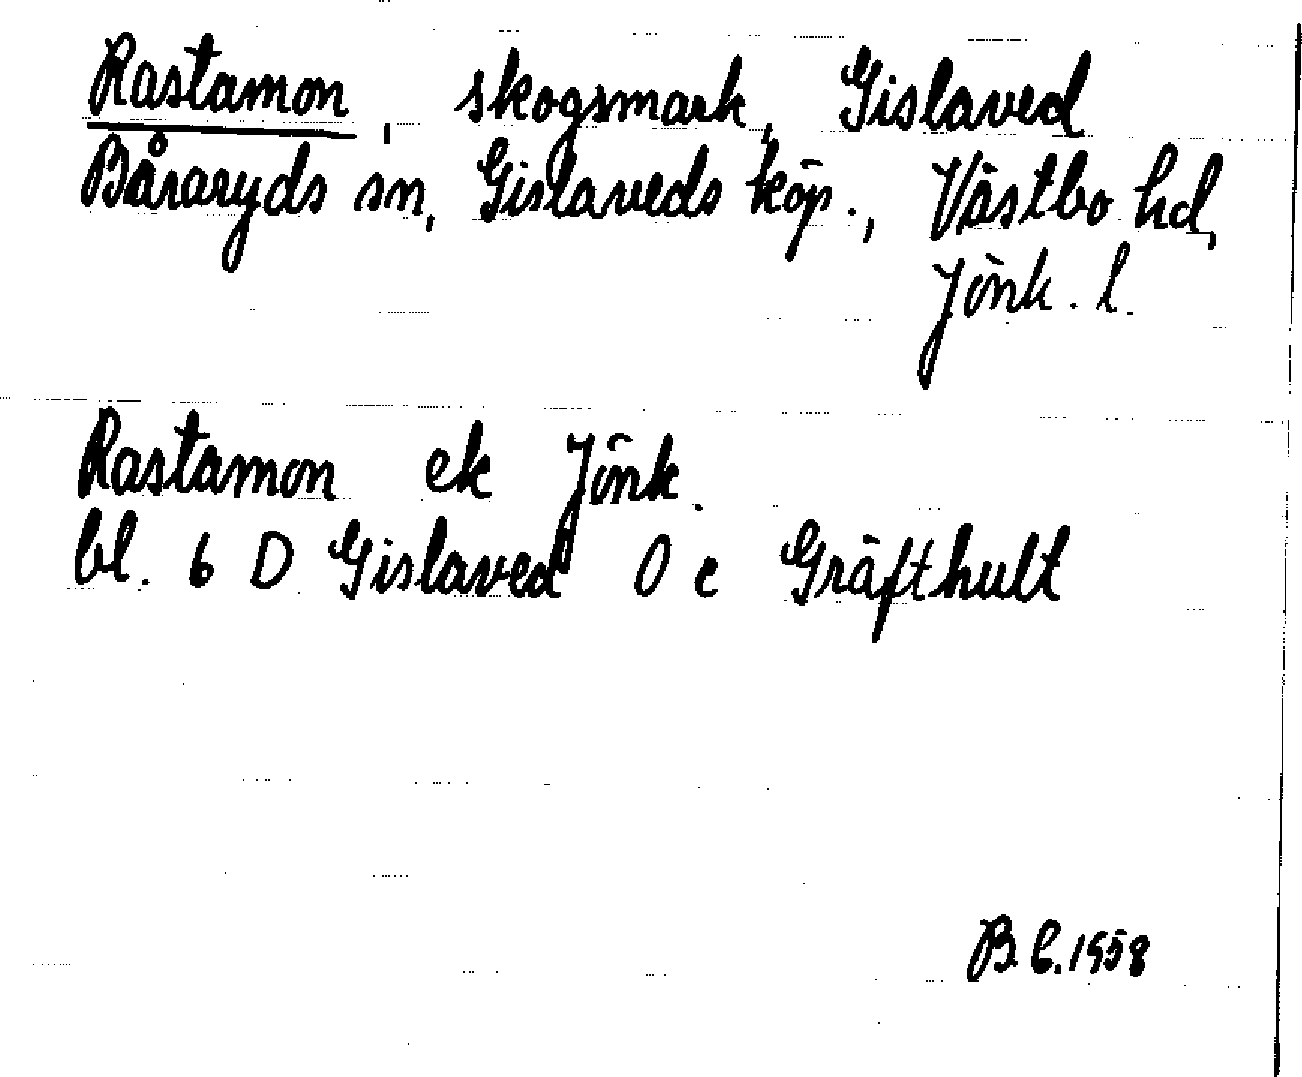 Rastamon, skogsmark, Gislaved
Båraryds sn, Gislaveds köp., Västbo hd,
Jönk. l.
Rastamon ek Jönk.
bl. 6 D Gislaved 0 c Gräfthult
B. C. 1958